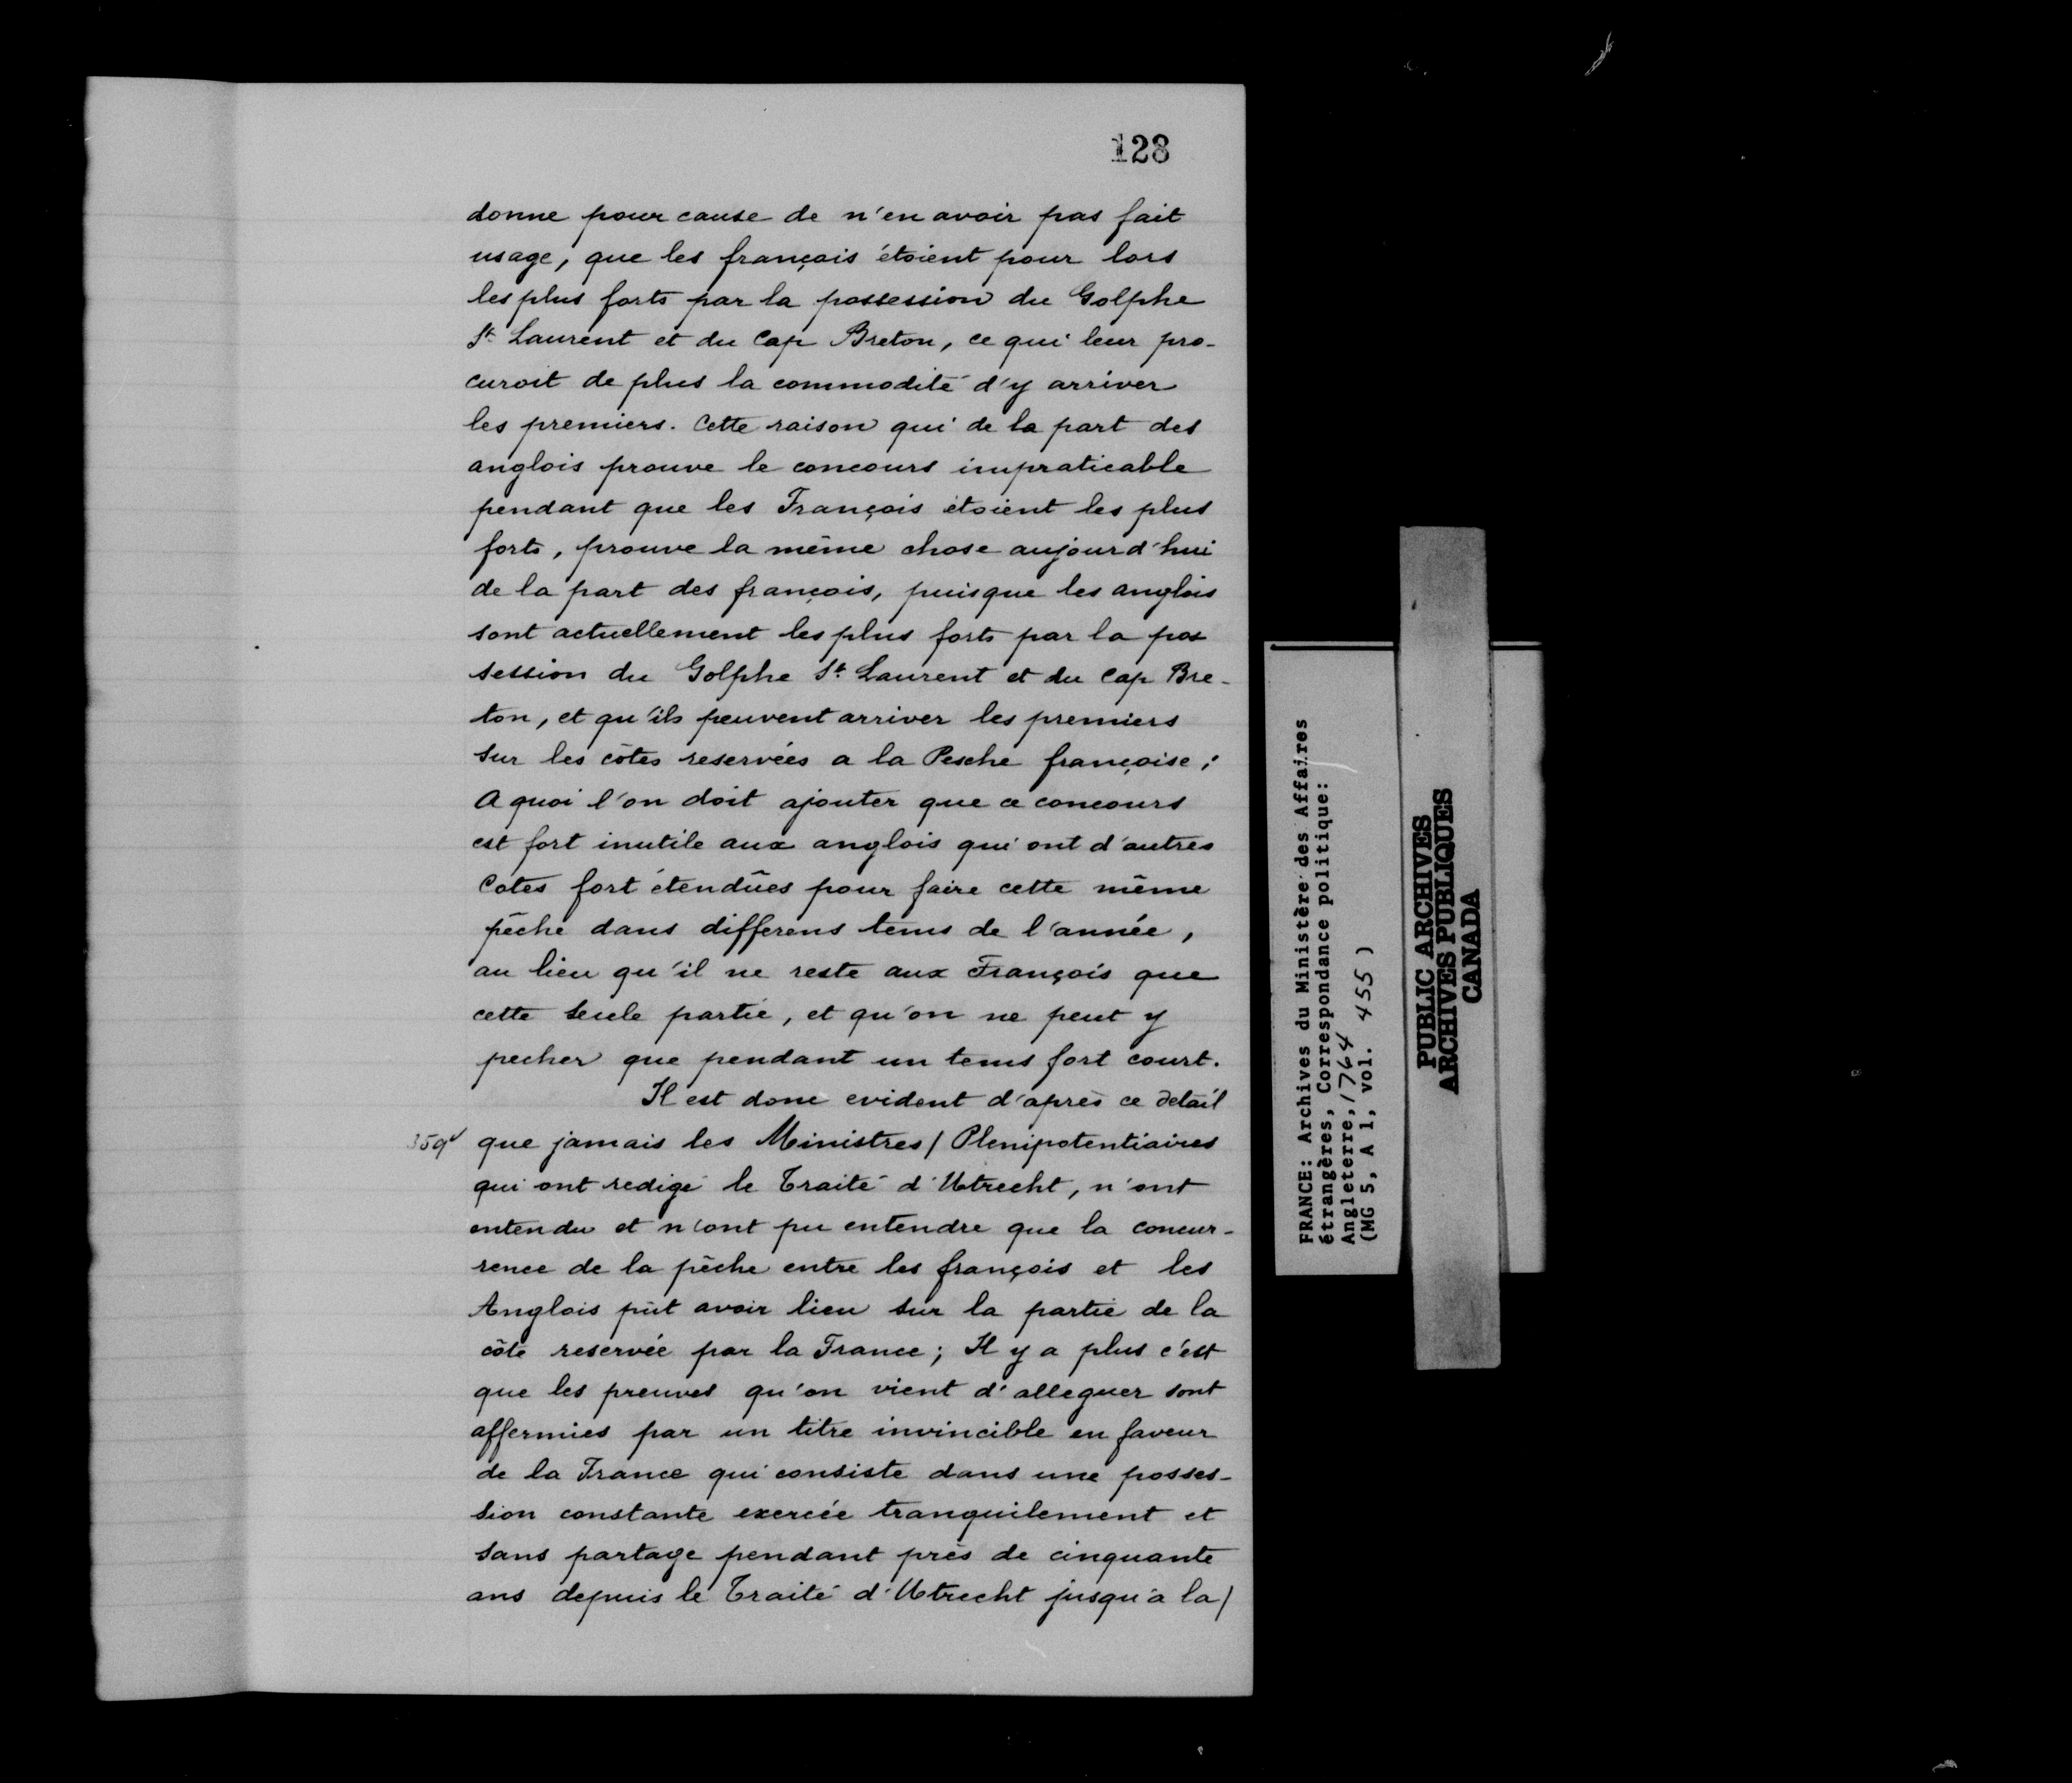 128
donne pour cause de n'en avoir pas fait
usage, que les français étoient pour lors
les plus forts par la possession du Golphe
St Laurent et du Cap Breton, ce qui leur pro-
curoit de plus la commodité d'y arriver
les premiers. Cette raison qui de la part des
anglois prouve le concours impraticable
pendant que les François étoient les plus
forts, prouve la même chose aujourd'hui
de la part des françois, puisque les anglois
sont actuellement les plus forts par la pos
session du Golphe St Laurent et du Cap Bre-
ton, et qu'ils peuvent arriver les premiers
sur les côtes reservées a la Pesche françoise;
A quoi l'on doit ajouter que ce concours
est fort inutile aux anglois qui ont d'autres
Cotes fort étendües pour faire cette même
pêche dans differens tems de l'année,
au lieu qu'il ne reste aux François que
cette seule partie, et qu'on ne peut y
pecher que pendant un tems fort court.
Il est donc evident d'après ce detail
359v que jamais les Ministres / Plenipotentiaires
qui ont redigé le Traité d'Utrecht, n'ont
entendu et n'ont pu entendre que la concur-
rence de la pêche entre les françois et les
Anglois pût avoir lieu sur la partie de la
côte reservée par la France; Il y a plus c'est
que les preuves qu'on vient d'alleguer sont
affermies par un titre invincible en faveur
de la France qui consiste dans une posses-
sion constante exercée tranquilement et
sans partage pendant près de cinquante
ans depuis le Traité d'Utrecht jusqu'à la /
FRANCE: Archives du Ministère des Affaires
étrangères, Correspondance politique:
Angleterre, 1764
(MG 5, A 1, vol. 455 )
PUBLIC ARCHIVES
ARCHIVES PUBLIQUES
CANADA